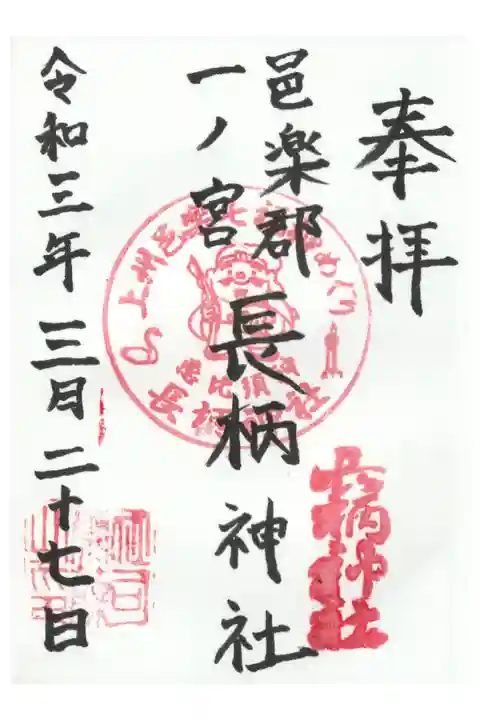 奉拝
邑楽郡
一ノ宮
長柄神社
令和三年三月二十七日
上州邑楽七福神めぐり
恵比須
長柄神社
長柄神社